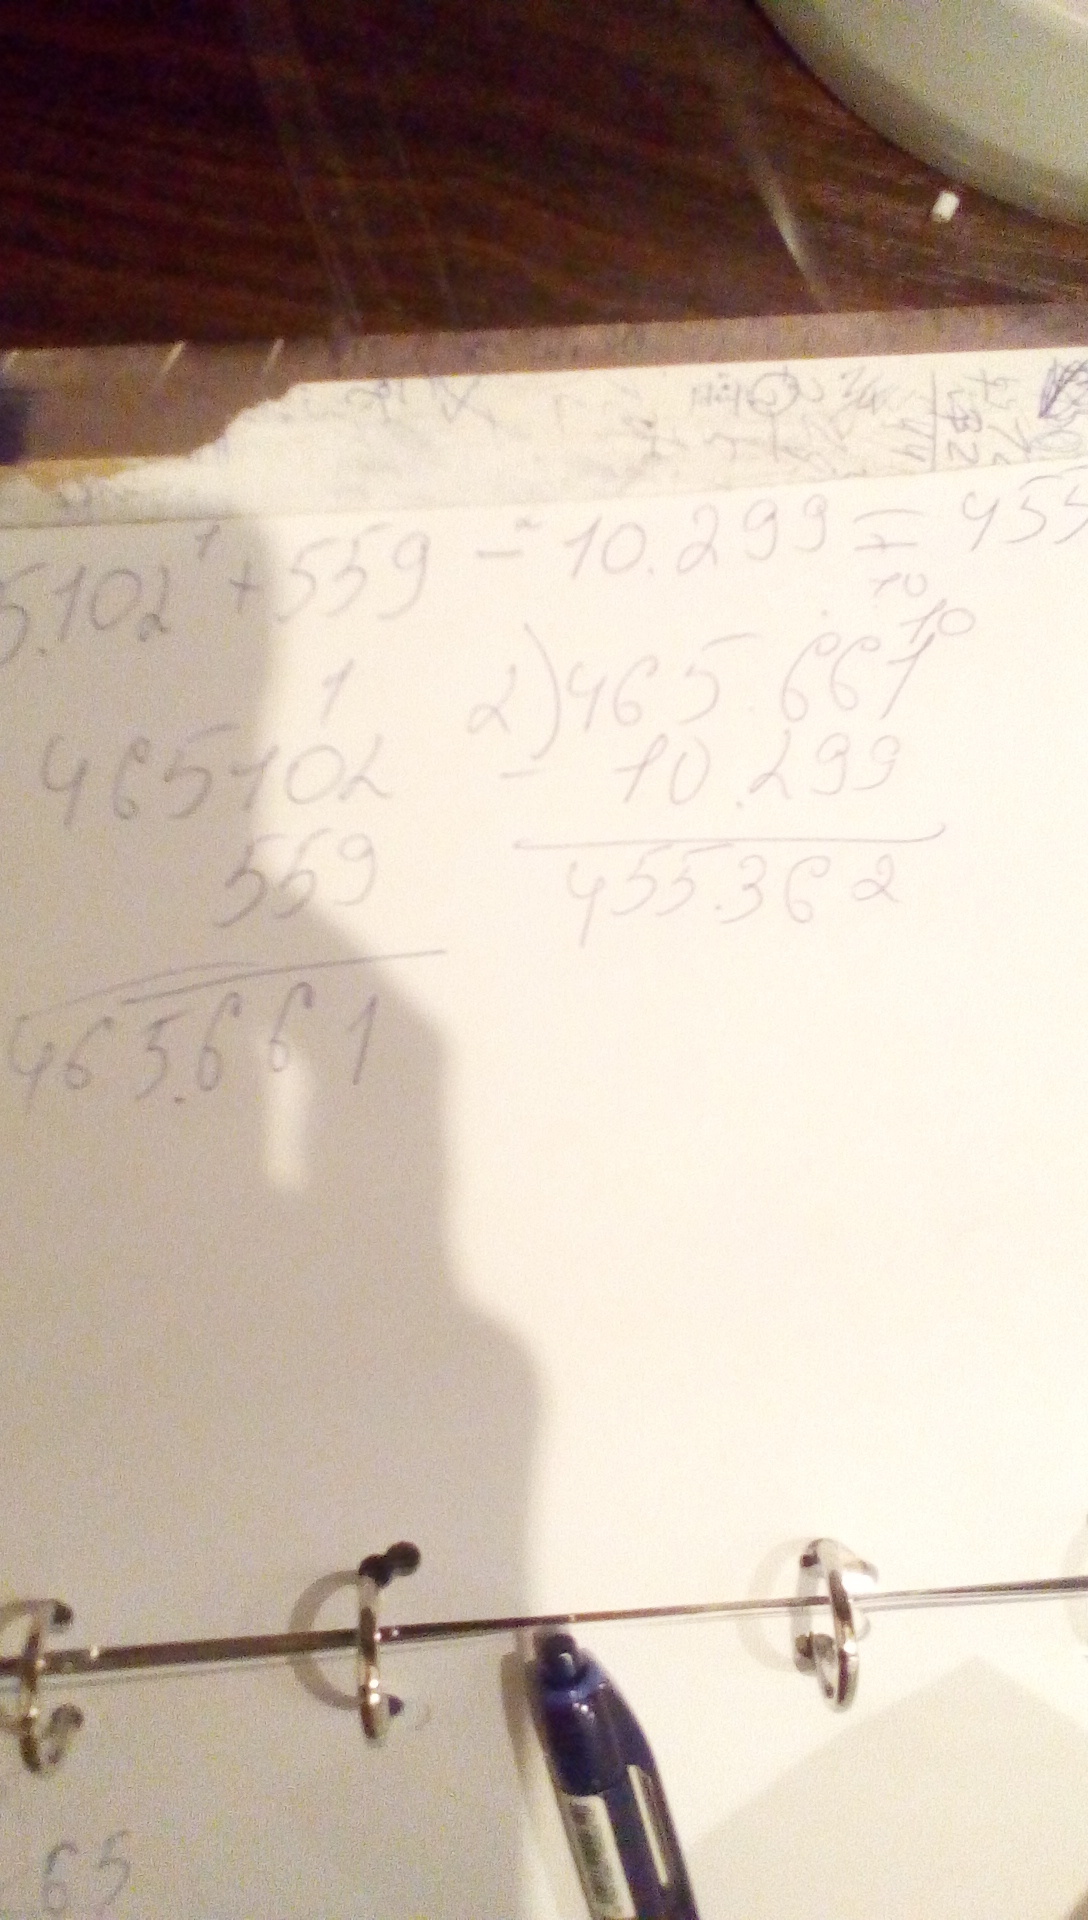 5.102 + 559 - 10.299 = 455
1
2
10
10
1
465102
559
465.661
2) 465.661
- 10.299
455.362
65